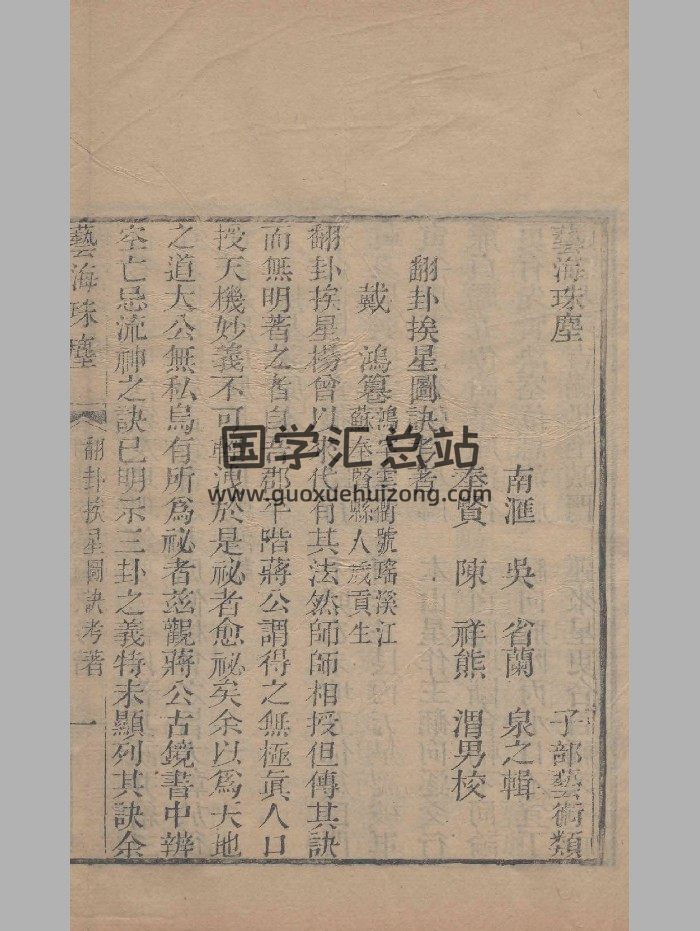 藝海珠塵
子部藝術類
南滙吳省蘭泉之輯
奉賢陳祥熊渭男校
翻卦挨星圖訣考著
戴鴻
鴻字雲衢號瑤溪江
蘇奉賢縣人歲貢生
翻卦挨星楊曾以來代有其法然師師相授但傳其訣
而無明著之者自
郡平階蔣公謂得之無極眞人口
授天機妙義不可輕洩於是祕者愈祕矣余以爲天地
之道大公無私烏有所爲祕者茲觀蔣公古鏡書中辨
空亡忌流神之訣已明示三卦之義特未顯列其訣余
藝海珠塵
翻卦挨星圖訣考著
一
国学汇总站
www.guoxuehuizong.com